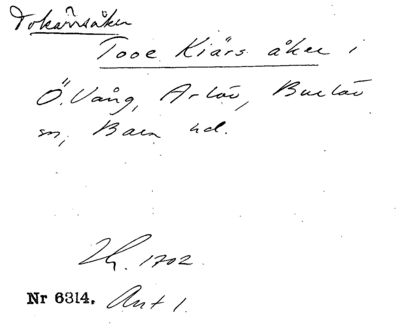 Tokärsåker
Tooe Kiärs åker i
Ö. Vång, Arlöv, Burlöv
sn, Bara hd.
1702.
Nr 6314. Ant 1.